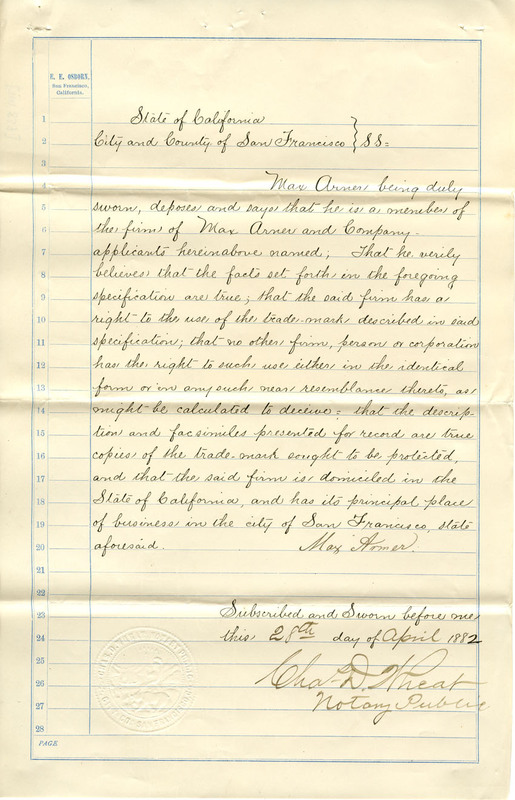 E. E. OSBORN,
San Francisco,
California.
1
State of California
2
City and County of San Francisco } SS=
3
Max Arner being duly
4
5
sworn, deposes and says that he is a member of
6
the firm of Max Arner and Company-
7
applicants hereinabove named; That he verily
8
believes that the facts set forth in the foregoing
9
specification are true; that the said firm has a
10
right to the use of the trade-mark described in said
11
specification; that no other firm, person or corporation
12
has the right to such use either in the identical
13
form or in any such near resemblance thereto, as
14
might be calculated to deceive= that the descrip-
15
tion and facsimiles presented for record are true
16
copies of the trade-mark sought to be protected,
17
and that the said firm is domiciled in the
18
State of California, and has its principal place
19
of business in the city of San Francisco, state
20
aforesaid. Max Arner.
21
22
23
Subscribed and Sworn before me
24
this 28th day of April 1882
25
26
Chas D. Wheat
27
Notary Public
28
PAGE